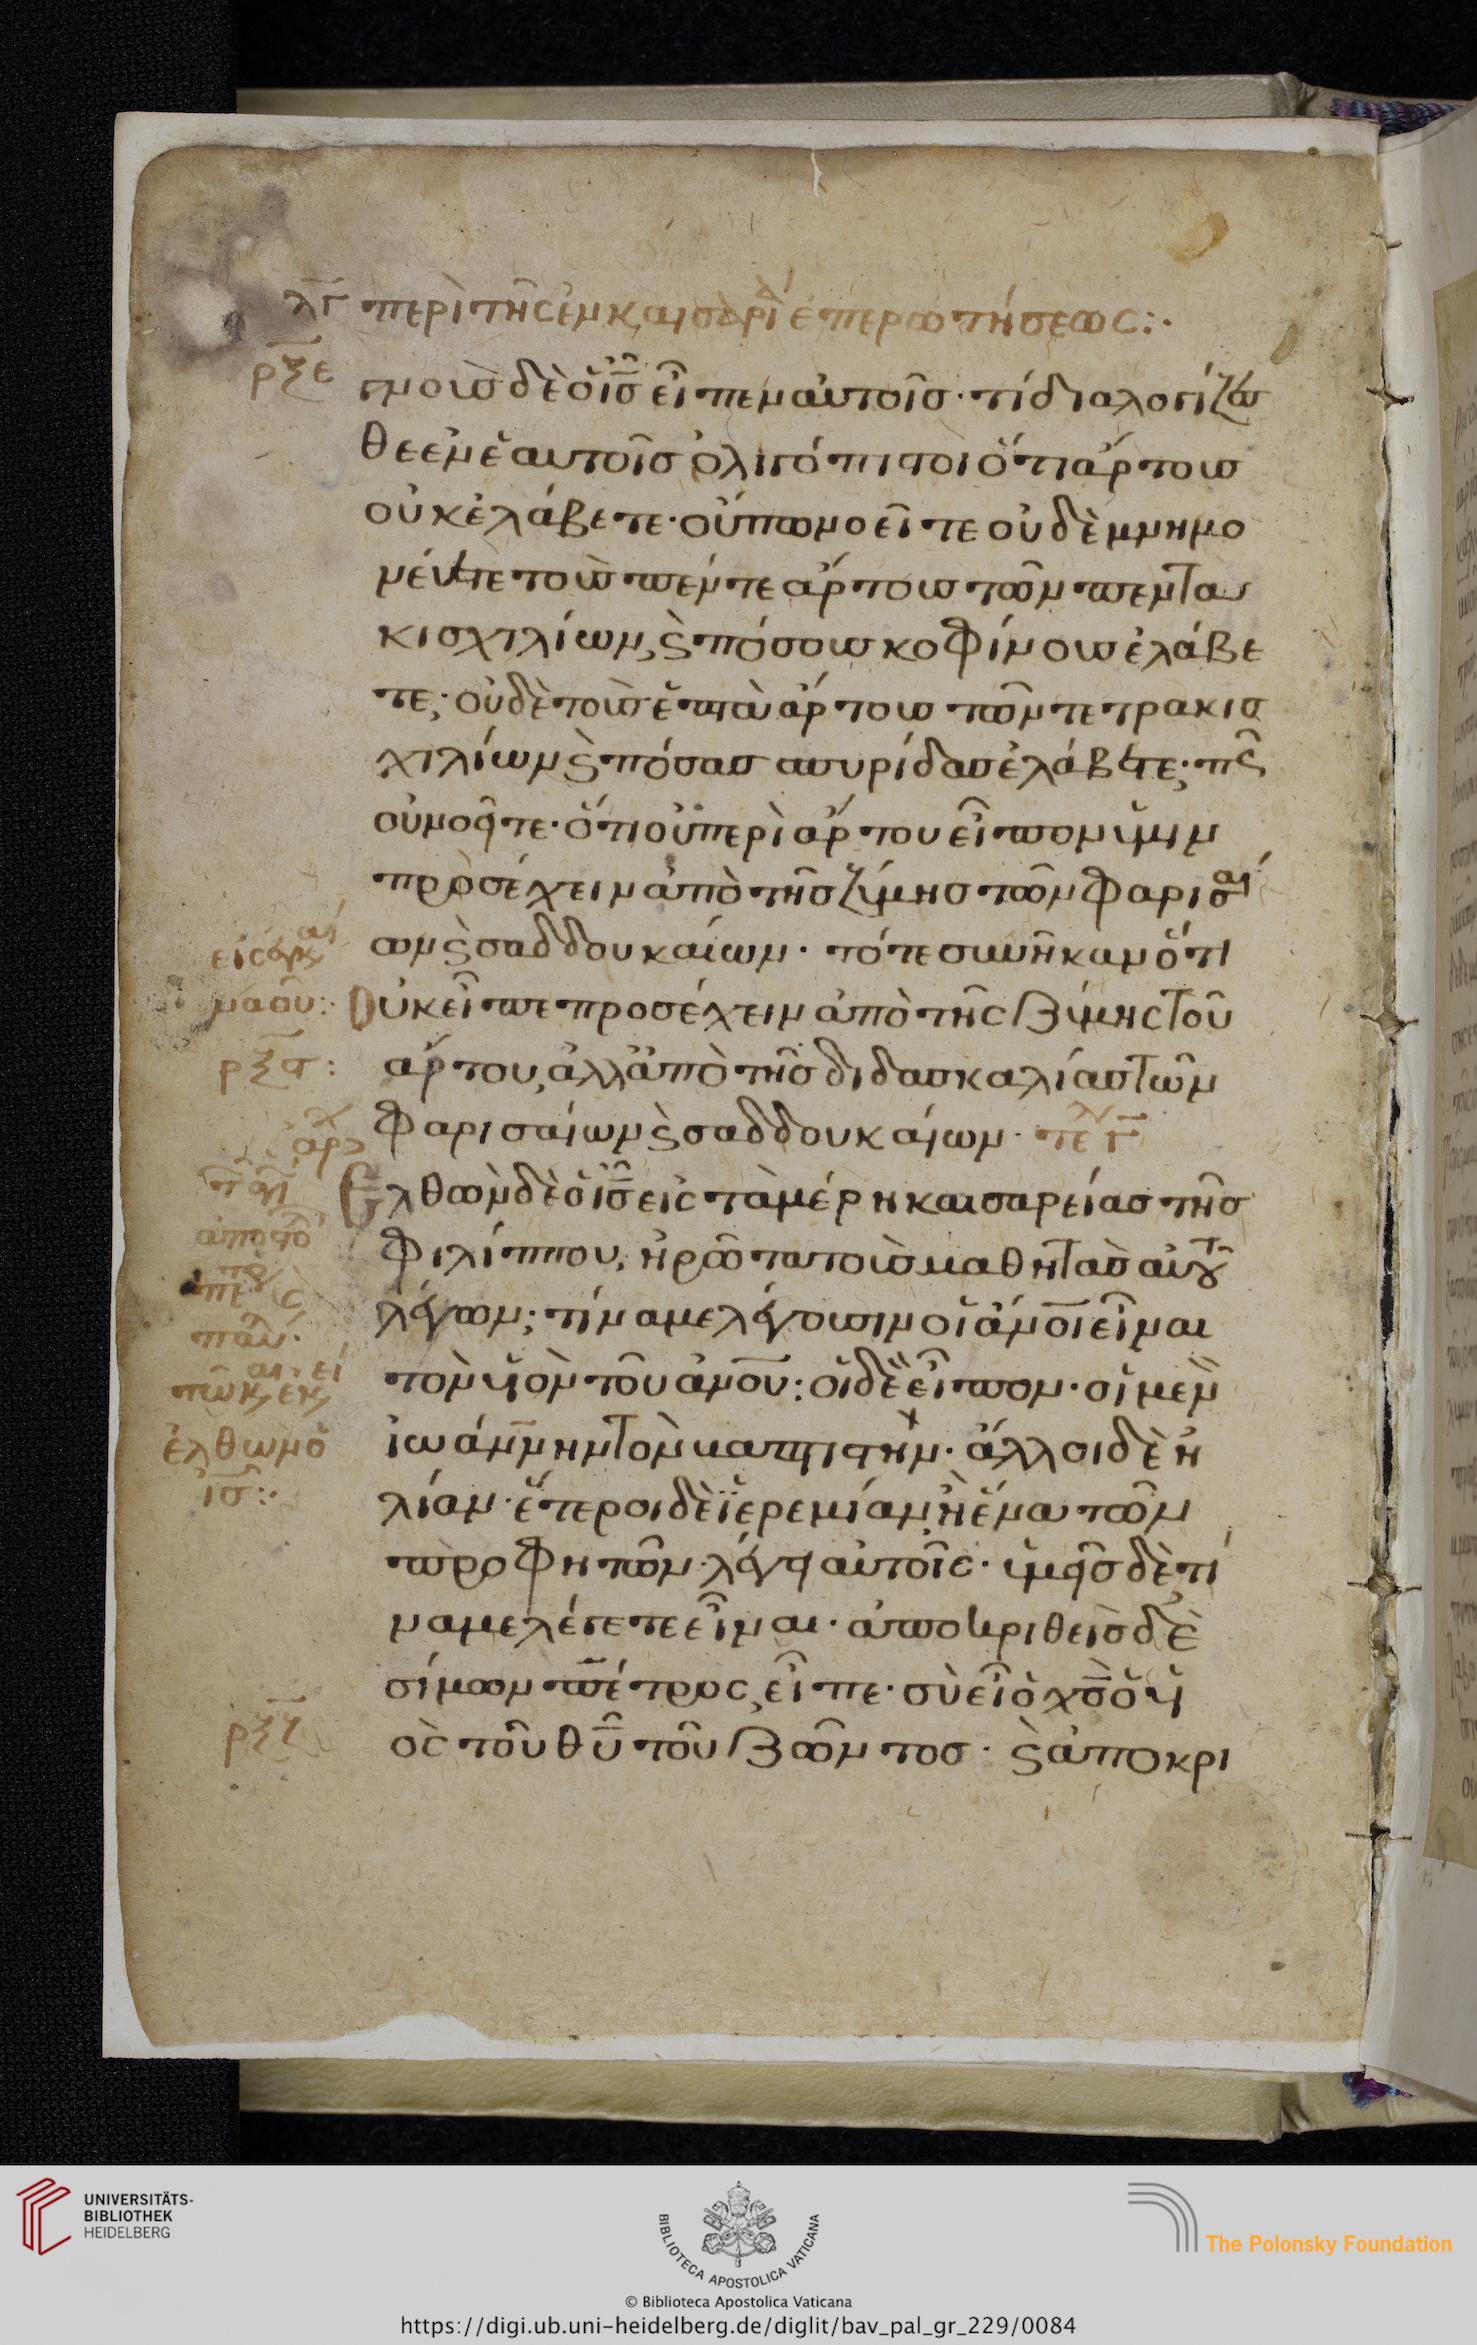 λγ περὶ τῆς ἐν καισαρί ἐπερωτήσεως:·
ρξε
γνοὺσ δὲ ὁ ἰσ εἶπεν αὐτοῖσ· τί διαλογίζεσ
θε ἐν ἑαυτοῖσ ὀλιγόπιστοι ὅτι ἄρτουσ
οὐκ ἐλάβετε· οὔπω νοεῖτε οὐδὲ μνημο
νέυετε τοὺσ πέντε ἄρτουσ τῶν πεντα
κισχιλίων, ϛ πόσουσ κοφίνουσ ἐλάβε
τε; οὐδὲ τοὺσ ἑπτὰ ἄρτουσ τῶν τετρακισ
χιλίων ϛ πόσασ σπυρίδασ ἐλάβετε; πς
οὐ νοεῖτε· ὅτι οὐ περὶ ἄρτου εἶπον ὑμῖν
προσέχειν ἀπὸ τῆσ ζύμησ τῶν φαρισαί
ων ϛ σαδδουκαίων· τότε συνῆκαν ὅτι
οὐκ εἶπε προσέχειν ἀπὸ τῆς ζύμης τοῦ
ρξϛ:
ἄρτου, ἀλλ' ἀπὸ τῆσ διδασκαλίασ τῶν
φαρισαίων ϛ σαδδουκαίων· τε γ
ἀρχ
ἐλθὼν δὲ ὁ ἰσ εἰς τὰ μέρη καισαρείασ τῆσ
φιλίππου, ἠρώτα τοὺσ μαθητὰσ αὐτοῦ
λέγων; τίνα με λέγουσιν οἱ ἀνοι εἶναι
τὸν υἱὸν τοῦ ἀνου: οἱ δὲ εἶπον· οἱ μὲν
ἰωάννην τὸν βαπτιστὴν· ἄλλοι δὲ ἠ
ἐλθων ὁ
ισ:·
λίαν· ἕτεροι δὲ ἱερεμίαν, ἢ ἕνα τῶν
προφητῶν· λέγει αὐτοῖς· ὑμεῖσ δὲ τί
να με λέγετε εἶναι· ἀποκριθεὶσ δὲ
σίμων πέτρος, εἶπε· σὺ εἶ ὁ χσ ὁ υἱ
ρξζ
ὸς τοῦ θυ τοῦ ζῶντοσ· ϛ ἀποκρι
UNIVERSITÄTS-
BIBLIOTHEK
HEIDELBERG
BIBLIOTECA APOSTOLICA VATICANA
The Polonsky Foundation
© Biblioteca Apostolica Vaticana
https://digi.ub.uni-heidelberg.de/diglit/bav_pal_gr_229/0084